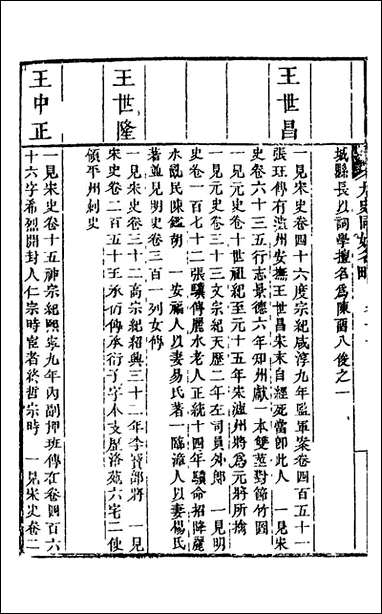 九史同姓名略
城縣長以詞學擅名爲陳留八俊之一
王世昌
一見宋史卷四十六度宗紀咸淳九年監軍案卷四百五十一
張珏傳有瀘州安撫王世昌宋末自經死當卽此人 一見宋
史卷六十三五行志景德六年知州獻一本雙莖對節竹圖
一見元史卷十世祖紀至元十五年宋瀘州將爲元將所擒
一見元史卷三十三文宗紀天曆二年左司員外郎 一見明
史卷一百七十二張驥傳麗水老人正統十四年驥命招降麗
水亂民陳鑑胡 一安福人以妻易氏著一臨漳人以妻楊氏
著並見明史卷三百一列女傳
王世隆
一見宋史卷三十二高宗紀紹興三十二年李寶部將 一見
宋史卷二百五十王承衍傳承衍子字本支歷洛苑六宅二使
領平州刺史
王中正
一見宋史卷十五神宗紀熙寧九年內副押班傳在卷四百六
十六字希烈開封人仁宗時宦者終哲宗時 一見宋史卷二